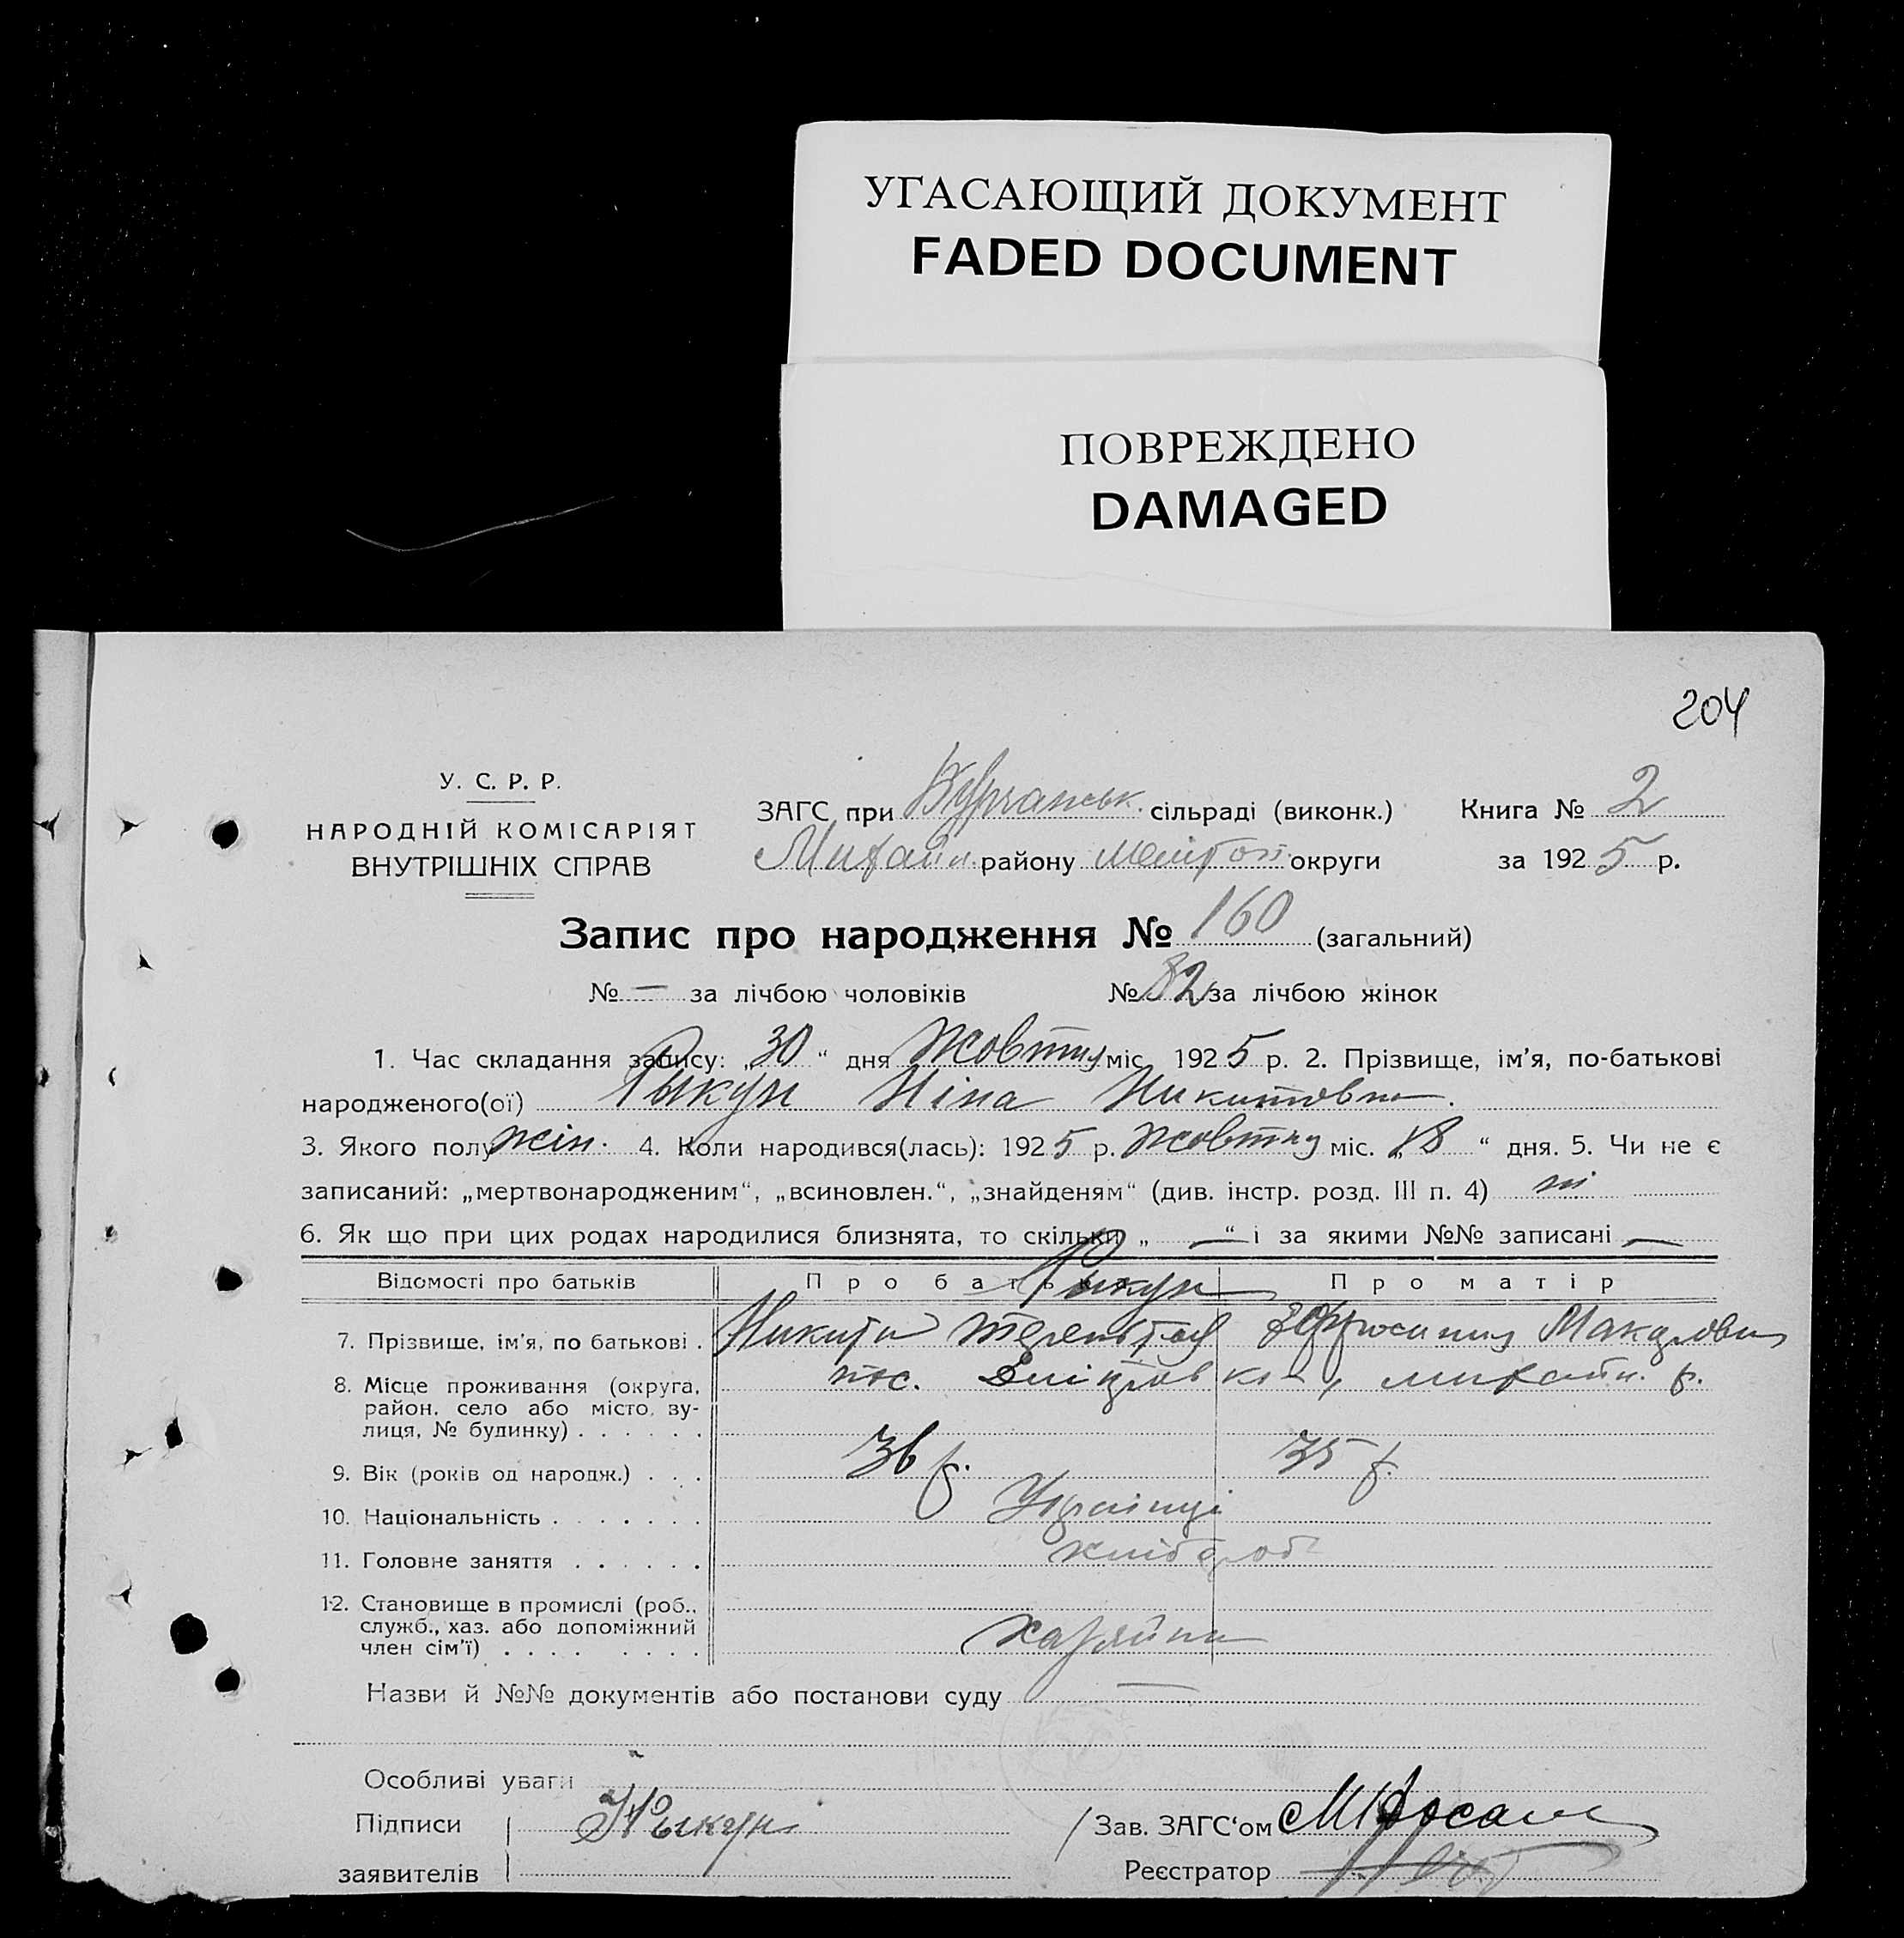 УГАСАЮЩИЙ ДОКУМЕНТ
FADED DOCUMENT
ПОВРЕЖДЕНО
DAMAGED
204
У. С. Р. Р.
НАРОДНІЙ КОМІСАРІЯТ
ВНУТРІШНІХ СПРАВ
ЗАГС при Курганськ. сільраді (виконк.) Книга № 2
Михайл. району Меліт округи за 1925 р.
Запис про народження № 160 (загальний)
№ — за лічбою чоловіків № 82 за лічбою жінок
1. Час складання запису: „30“ дня Жовтня міс. 1925 р. 2. Прізвище, ім'я, по-батькові
народженого(ої) Рыкун Ніна Никитовна.
3. Якого полу жін. 4. Коли народився(лась): 1925 р. Жовтня міс. „18“ дня. 5. Чи не є
записаний: „мертвонародженим“, „всиновлен.“, „знайденям“ (див. інстр. розд. III п. 4) ні
6. Як що при цих родах народилися близнята, то скільки „ — “ і за якими №№ записані —
Відомості про батьків Про батька Про матір
Рыкун
7. Прізвище, ім'я, по батькові . Никита Терентьев Ефросиния Макаровна
8. Місце проживання (округа, район, село або місто, ву-лиця, № будинку) . . . . . . пос. Дмітровка, михайл. р.
9. Вік (років од народж.) . . . 36 р. 35 р.
10. Національність . . . . . . . Українці
11. Головне заняття . . . . . . хлібороб
12. Становище в промислі (роб., служб., хаз. або допоміжний член сім'ї) . . . . . . . . хазяйни
Назви й №№ документів або постанови суду —
Особливі уваги
Підписи Н Рыкун / Зав. ЗАГС'ом
заявителів Реєстратор